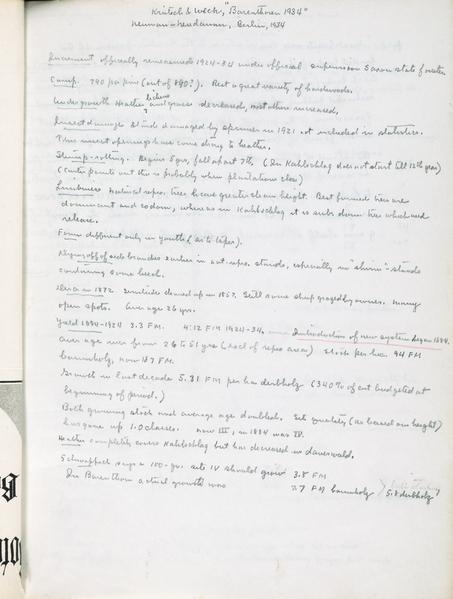 Krutsch & Weck, "Barenthoren 1934"
Neuman-Neudamm, Berlin, 1934
Increment officially remeasured 1924-34 under official supervision Saxon state forester
Comp. 790 pa pine (out of 890?). Rest a great variety of hardwoods.
lichens
Undergrowth Heather and grass decreased, most others increased.
Insect damage Stands damaged by in 1921 not included in statistics.
These insect openings have come along to heather.
Stump-rotting. Begins 5 yrs, fall apart 7th (In Kahlschlag does not start till 12th year)
(Cutes points out this is probably when plantations close)
Limbiness Natural repro. trees have greater clean height. Best formed trees are
dominant and codom, whereas in Kahlschlag it is subdom tree which need
release.
Form different only in youth (as to taper).
of side branches earlier in nat. repro. stands, especially in "shirm"-stands
containing some beech.
Area in 1872. Servitudes cleaned up in 1857. Still some sheep grazed by owners. Many
open spots. Ave age 26 yrs.
Yield 1884-1924 3.3 FM. 4.12 FM 1924-34. Introduction of new system began 1884.
Average age rose from 26 to 51 yrs (excl of repro area) Stock per ha 94 FM
baumholz, now 187 FM.
Growth in last decade 5.81 FM per ha derbholz (340% of cut budgeted at
beginning of period.)
Both growing stock and average age doubled. Site quality (as based on height)
has gone up 1.0 classes. now III, in 1884 was IV.
Heather completely covers Kahlschlag but has decreased in dauerwald.
Schwappach says a 100-yr. site IV should grow 3.8 FM
In Barenthoren actual growth was 7.7 FM baumholz 5.8 derbholz